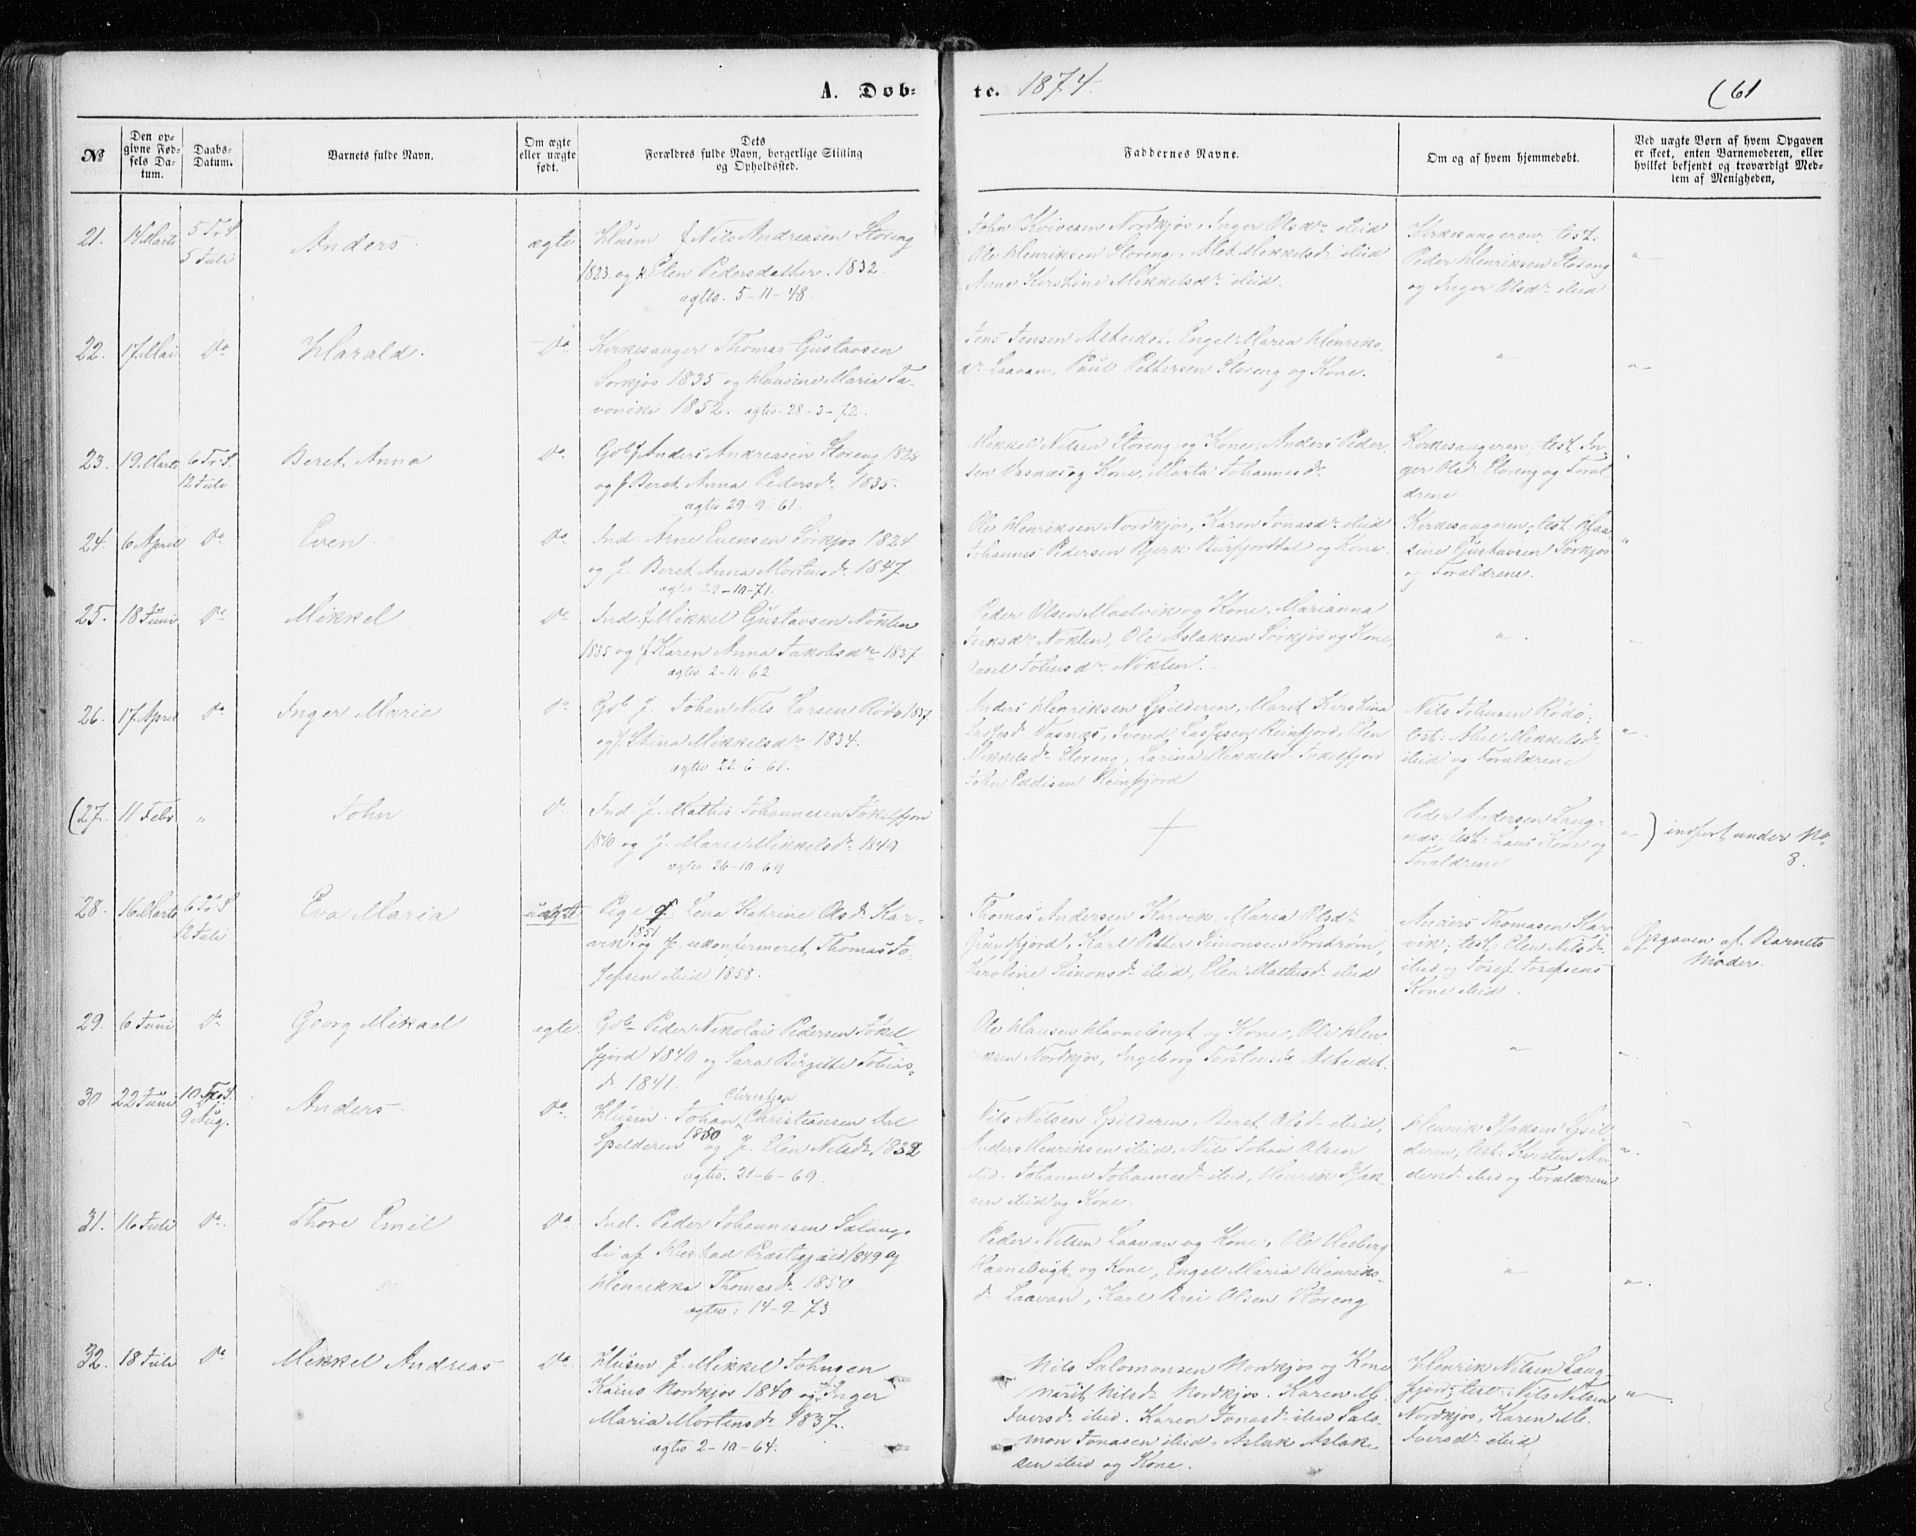 A. Døb- te. 1874. (61
№
Den op-
givne Fød-
sels Da-
tum.
Daabs-
Datum.
Barnets fulde Navn.
Om ægte
eller uægte
født.
Dets
Forældres fulde Navn, borgerlige Stilling
og Opholdssted.
Faddernes Navne.
Om og af hvem hjemmedøbt.
Ved uægte Børn af hvem Opgaven
er skeet, enten Barnemoderen, eller
hvilket bekjendt og troværdigt Med-
lem af Menigheden,
21. 14 Marts 5 Tr S.
5 Juli
Anders.
ægte
Husm f Nils Andreasen Storeng
1823. og f. Elen Pedersdatter. 1832.
ægtev. 5-11-48.
John Koivesen Nordkjos, Inger Olsdr ibid
Ole Henriksen Storeng, Mikkelsdr ibid
Anne Kirstine Mikkelsdr ibid.
Kirkesangeren; test.
Peder Henriksen Storeng
og Inger Olsdr ibid
"
22. 17 Mai Do
Harald.
Do
Kirkesanger Thomas Gustavsen
Sørkjos 1835 og Hansine Maria
1852. ægtev. 28-3-72.
Jens Jensen Alteidet, Engel Maria Henriks-
dr Laavan, Paul Pettersen Storeng og Kone.
"
"
23. 19 Marts 6 Tr S.
12 Juli
Beret Anna
Do
Gbf Anders Andreasen Storeng 1828
og f Beret Anna Pedersdr 1835.
ægtev 29-9-61.
Mikkel Nilsen Storeng og Kone, Anders Peder-
sen Vasnæs og Kone, Marta Johannesdr
Kirkesangeren; test. In-
ger Olsdr Storeng og Foræl-
drene
"
24. 6 April Do
Even.
Do
Ind. Arne Evensen Sørkjos 1824
og f. Beret Anna Mortensdr 1847.
ægtev 29-10-71.
Ole Henriksen Nordkjos, Karen Jonasdr ibid
Johannes Pedersen Bjerk. Burfjorddal og Kone.
Kirkesangeren; test. Han-
sine Gustavsen Sørkjos
og Forældrene.
"
25. 18 Juni Do
Mikkel
Do
Ind. f Mikkel Gustavsen Noklen
1835 og f Karen Anna Jakobsdr 1837
ægtev 2-11-62.
Peder Olsen Maalvik og Kone, Marianna
Noklen, Ole Aslaksen Sørkjos og Kone,
Johnsdr Noklen.
"
"
26. 17 April Do
Inger Marie
Do
Gbf J. Johan Nils Larsen Rødø 1837
og f. Stina Mikkelsdr 1834.
ægtev 22-6-61.
Anders Henriksen Spilderen, Maret Kirstina
Vasnæs, Svend Lassesen Reinfjord, Elen
Mikkelsdr Storeng, Larina Mikkelsdr Jøkelfjord
John Eddisen Reinfjord
Nils Johnsen Rødø;
test: Mikkelsdr
ibid og Forældrene
"
(27. 11 Febr "
John
Do
Ind. f. Mathis Johannesen Jøkelfjord
1840 og f. Marie Mikkelsdr 1849
ægtev 26-10-69
+
Peder Andersen Laug-
næs; test: hans Kone og
Forældrene
" ) indført under No
8.
28. 16 Marts 6 Tr S
12 Juli
Eva Maria
uægte
Pige f. Lena Katrine Olsdr Kar-
vik 1851 og f. ukonfirmeret, Thomas Jo-
sefsen ibid 1858.
Thomas Andersen Karvik, Maria Olsdr
Gundfjord, Karl Petter Simonsen Sørstrøm,
Karoline Simonsdr ibid, Elen Mathisdr ibid
Anders Thomasen Kar-
vik; test: Elen Nilsdr
ibid og Josef Josefsens
Kone ibid.
Opgaven af Barnets
Moder.
29. 6 Juni Do
Georg Mikael
ægte
Gbf Peder Nikolai Pedersen Jøkel-
fjord 1840 og Sara Birgitte Tobias-
dr 1841.
Ole Hansen Havnebugt og Kone, Ole Hen-
riksen Nordkjos, Ingeborg Alteidet.
"
"
30 22 Juni 10 Tr S.
9 Aug.
Anders.
Do
Husm. Johan Christian Christiansen Dal
Spilderen 1850 og f. Elen Nilsdr 1832
ægtev. 21-6-69.
Nils Nilsen Spilderen, Beret Olsdr ibid,
Anders Henriksen ibid, Nils Johan Olsen
ibid. Johanne Johannesdr ibid, Henrik Isak-
sen ibid og Kone.
Henrik Isaksen Spil-
deren; test: Kirsten An-
dersdr ibid og Forældrene
"
31. 16 Juli Do.
Thore Emil
Do
Ind. Peder Johannesen Salangs-
li af Præstegjæld 1849 og
Henrikka Thomasdr 1850
ægtev: 14-9-73
Peder Nilsen Laavan og Kone, Ole Heeberg
Havnebugt og Kone, Engel Maria Henriks-
dr Laavan, Karl Brei Olsen Storeng
"
"
32. 18 Juli Do
Mikkel Andreas
Do
Husm f. Mikkel Johnsen
Kainus Nordkjos 1840 og f. Inger
Maria Mortensdr 1837.
ægtev 2-10-64.
Nils Salomonsen Nordkjos og Kone
Marit Nilsdr Nordkjos. Karen M.
Iversdr ibid. Karen Jonasdr ibid Salo-
mon Jonasen ibid, Aslak Aslak-
sen ibid og Kone.
Henrik Nilsen Laug-
fjord; test: Nils Nilsen
Nordkjos, Karen M.
Iversdr ibid
"